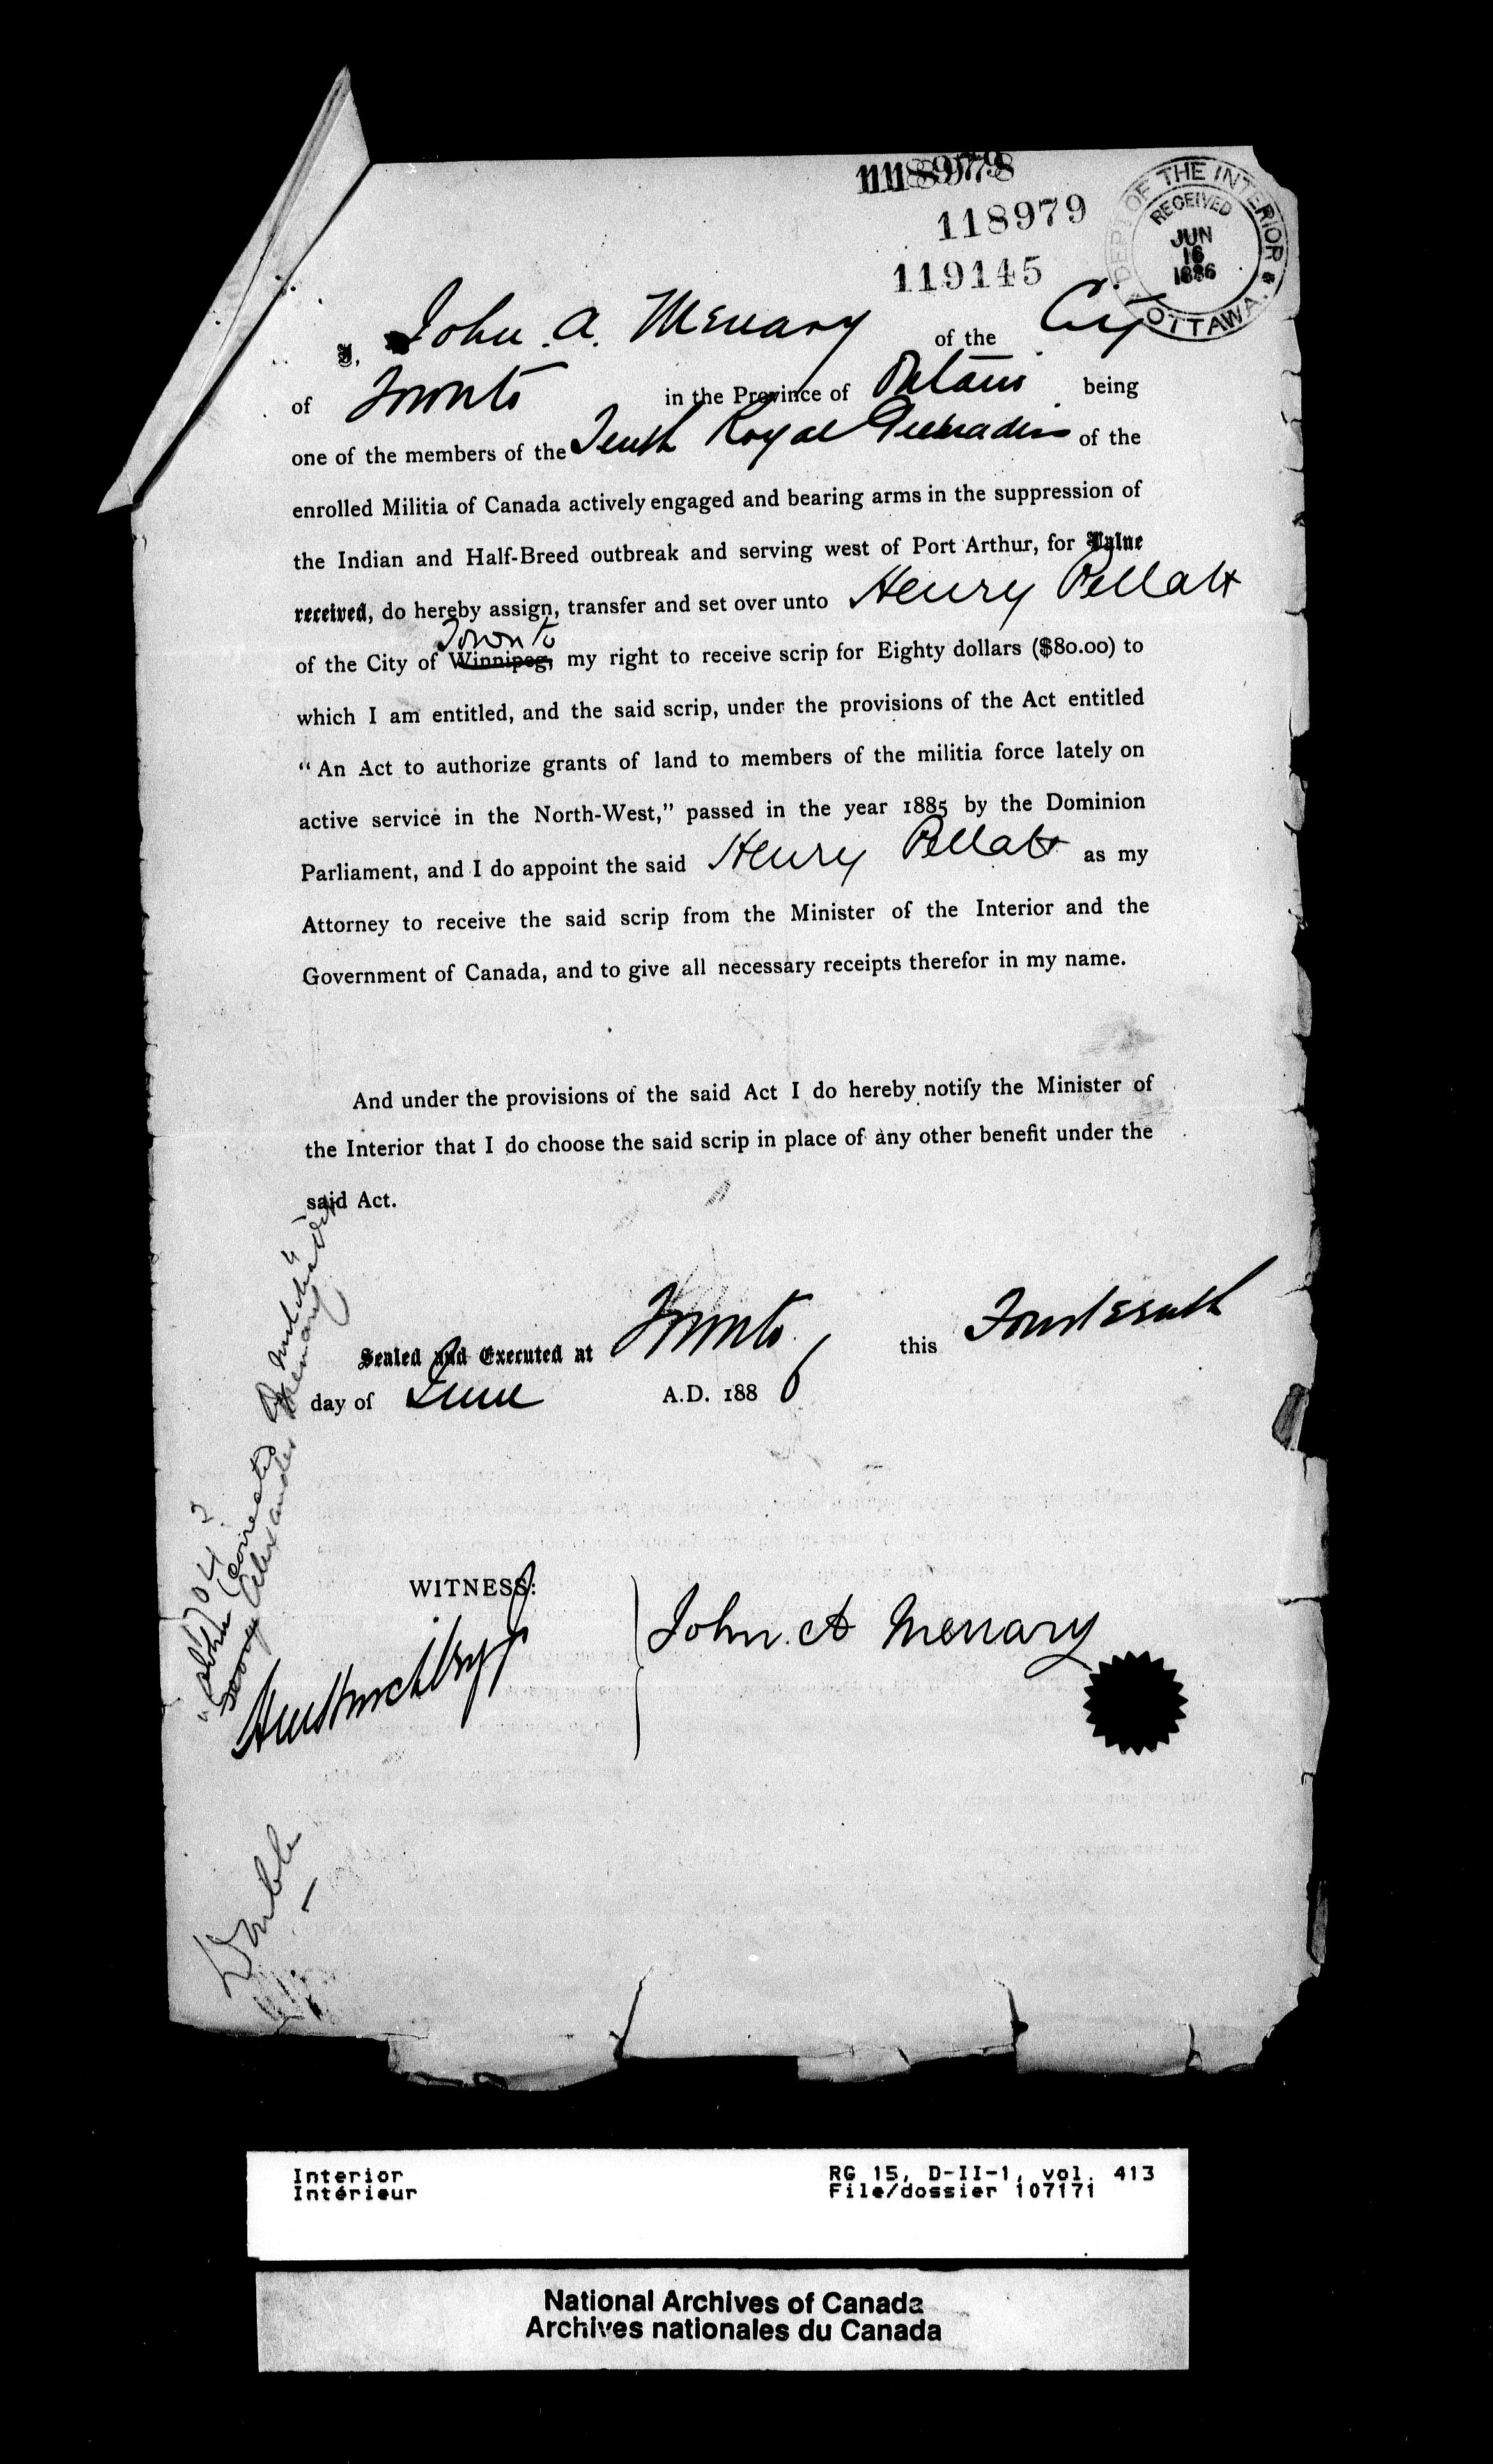 118979
118979
119145
DEPT. OF THE INTERIOR
RECEIVED
JUN
16
1886
OTTAWA.
I, John. A. Menary of the City
of Toronto in the Province of Ontario being
one of the members of the Tenth Royal Grenadiers of the
enrolled Militia of Canada actively engaged and bearing arms in the suppression of
the Indian and Half-Breed outbreak and serving west of Port Arthur, for Value
received, do hereby assign, transfer and set over unto Henry Pellatt
Toronto
of the City of Winnipeg, my right to receive scrip for Eighty dollars ($80.00) to
which I am entitled, and the said scrip, under the provisions of the Act entitled
“An Act to authorize grants of land to members of the militia force lately on
active service in the North-West,” passed in the year 1885 by the Dominion
Parliament, and I do appoint the said Henry Pellatt as my
Attorney to receive the said scrip from the Minister of the Interior and the
Government of Canada, and to give all necessary receipts therefor in my name.
And under the provisions of the said Act I do hereby notify the Minister of
the Interior that I do choose the said scrip in place of any other benefit under the
said Act.
Sealed and Executed at Toronto this Fourteenth
day of June A.D. 1886
WITNESS:
John. A Menary
"John Alexander Menary"
Double
Interior
Intérieur
RG 15, D-II-1, vol. 413
File/dossier 107171
National Archives of Canada
Archives nationales du Canada